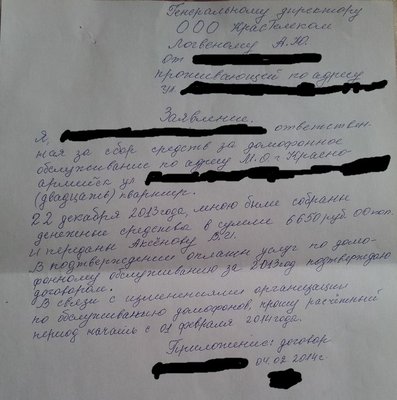 Генеральному директору
ООО КрасТелеком
Логвеному А.Ю.
от
проживающей по адресу
ул.
Заявление.
Я, ответствен-
ная за сбор средств за домофонное
обслуживание по адресу М.О. г Красно-
армейск ул
(двадцать) квартир.
22 декабря 2013 года, мною были собранн
денежные средства в сумме 6650 руб 00 коп.
и переданы Аксёнову В.И.
В подтверждении оплаты услуг по домо-
фонному обслуживанию за 2013 год подтверждаю
договором.
В связи с изменениями организации
по обслуживанию домофонов, прошу расчётный
период начать с 01 февраля 2014 года.
Приложение: договор
04.02 2014г.